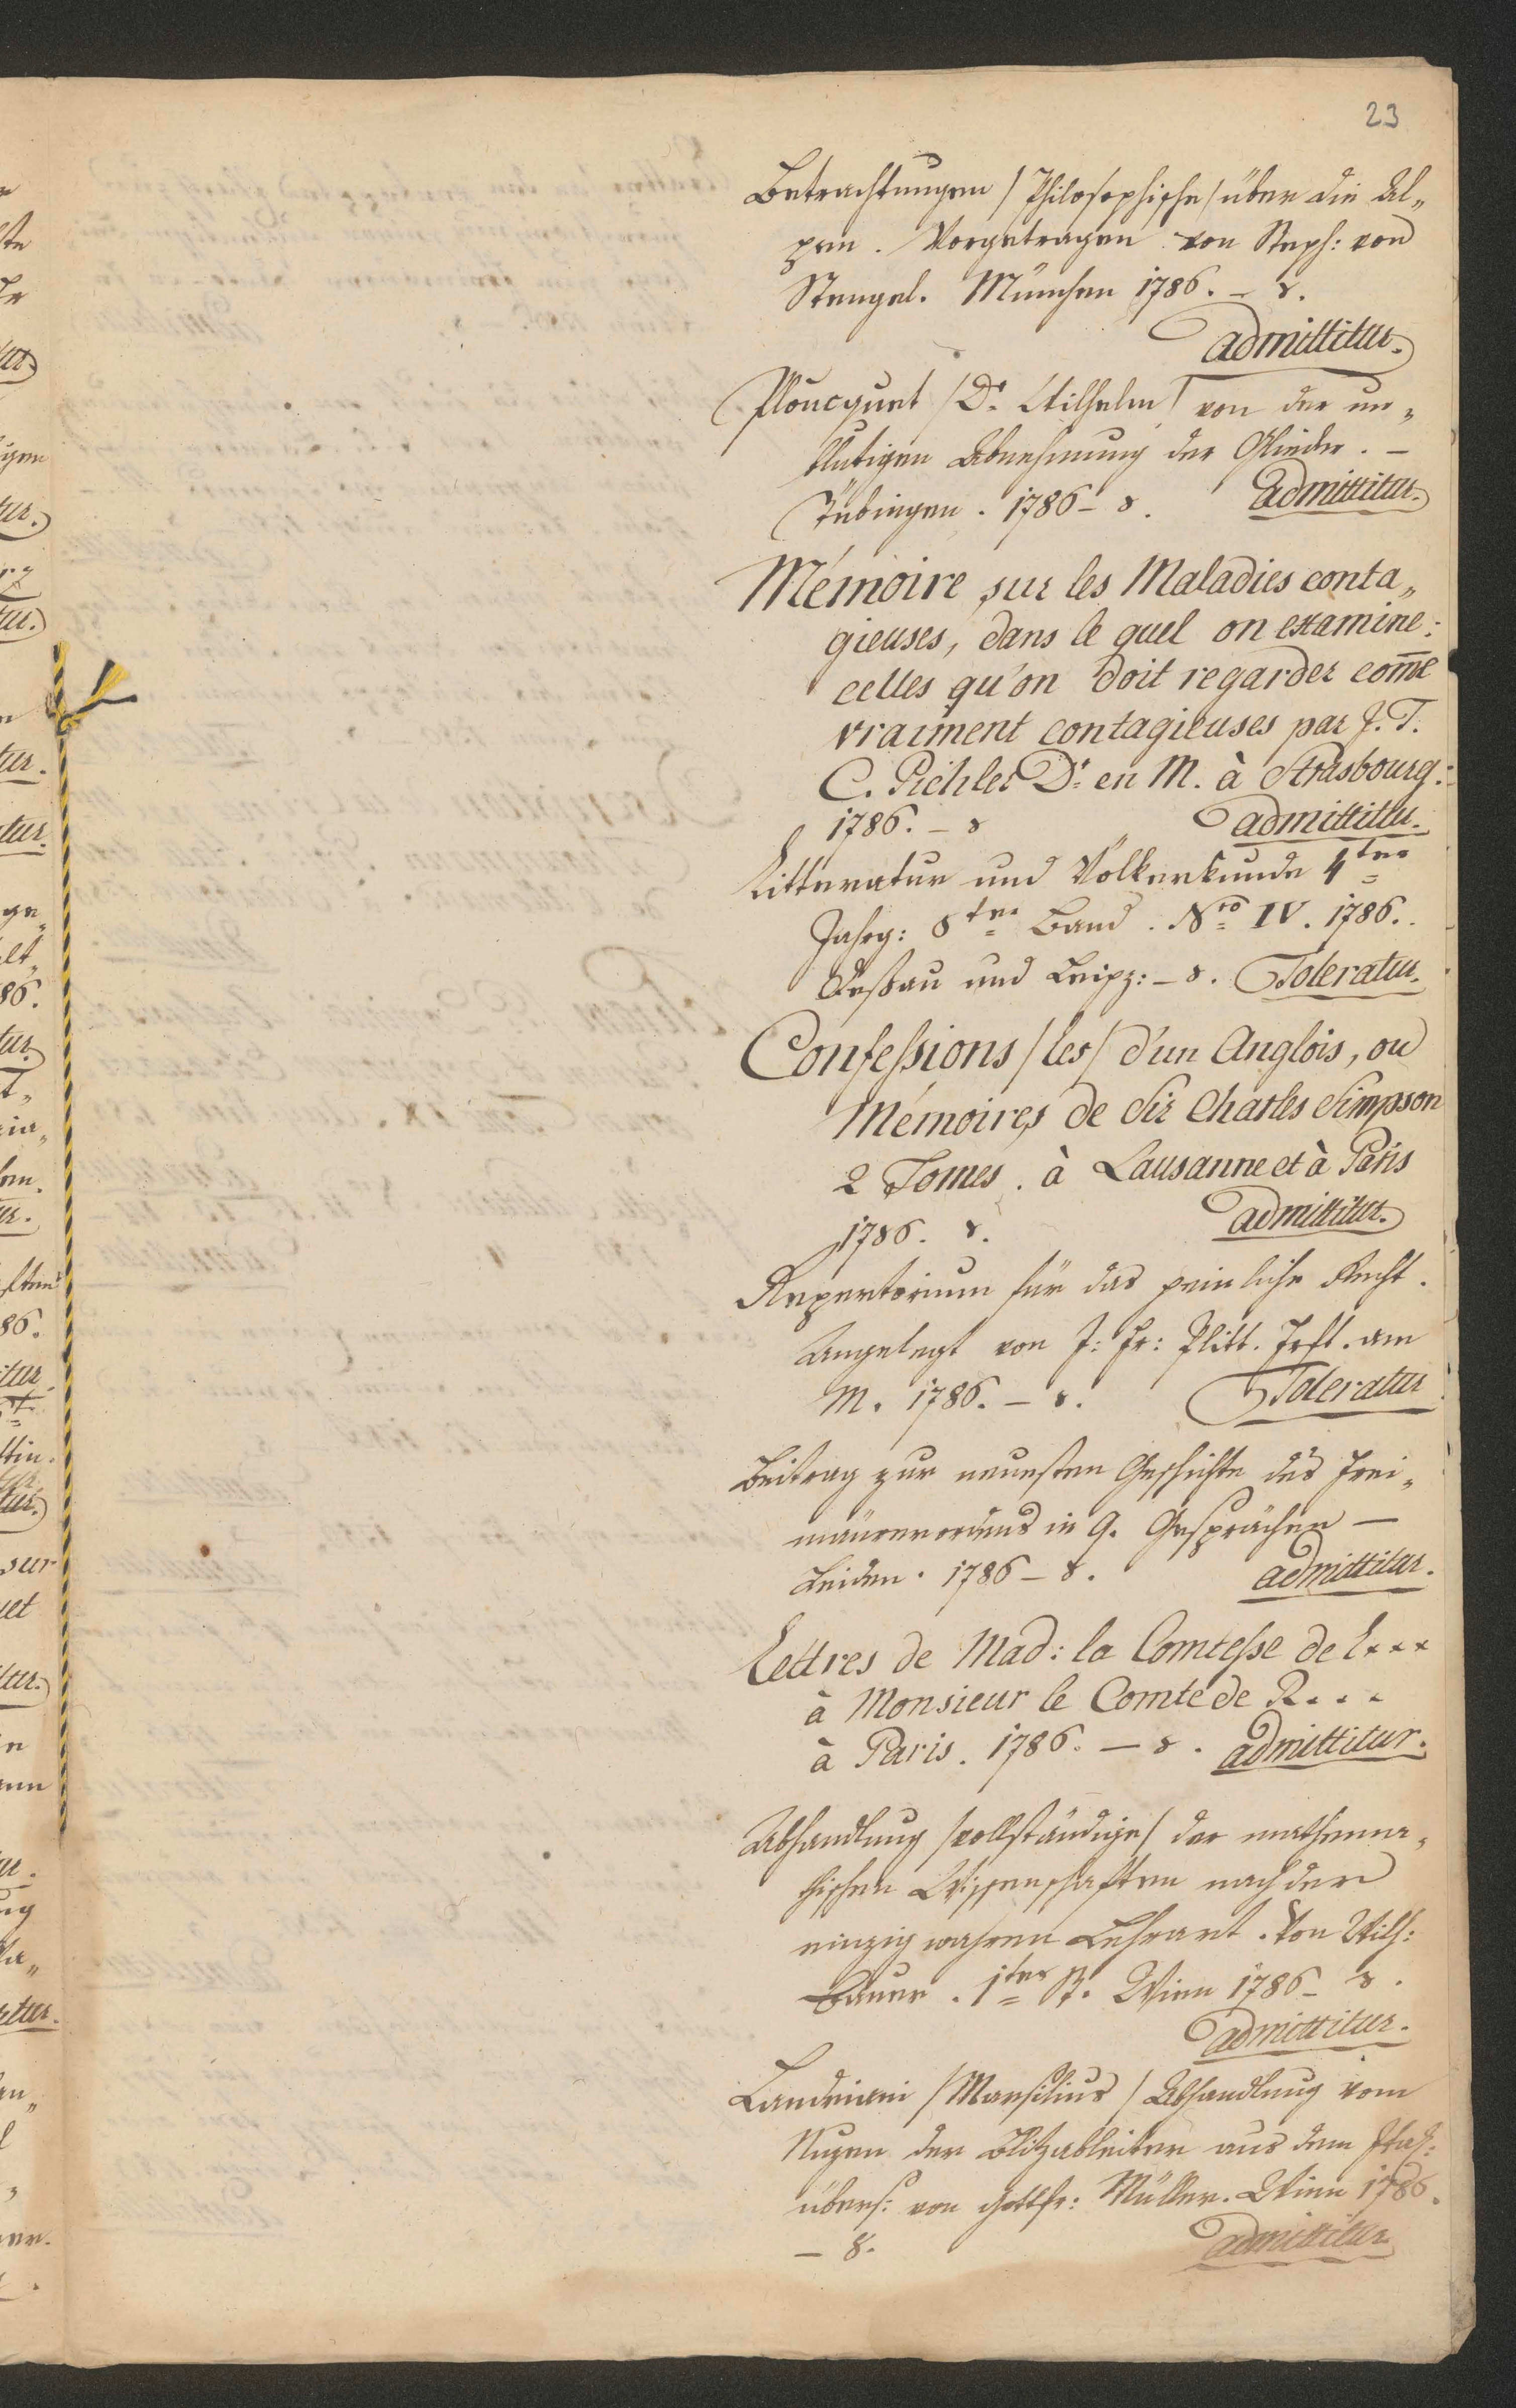 23
Betrachtungen /Philosophische/ über die Al„
pen. Vorgetragen von Steph: von
Stengel. München 1786. – 8.
admittitur.
Ploucquet /Dr. Wilhelm/ von der un„
blutigen Abnehmung der Glieder. –
Tübingen. 1786 – 8. admittitur.
Mémoire sur les Maladies conta„
gieuses, dans le quel on examine:
celles qu'on doit regarder com̄e
vraiment contagieuses par J. T.
C. Pichler Dr. en M. à Strasbourg.
1786. – 8 admittitur.
Litteratur und Völkerkunde 4ter
Jahrg: 8ter Band. Nro IV. 1786.
Deßau und Leipz: – 8. Toleratur.
Confeſsions /les/ d'un Anglois, ou
Mémoires de Sir Charles Simpson
2 Tomes. à Lausanne et à Paris
1786. 8. admittitur.
Repertorium für das peinliche Recht.
Angelegt von J: Fr: Plitt. Frft. am
M. 1786. – 8. Toleratur
Beitrag zur neuesten Geschichte des Frei„
maürerordens in 9. Gesprächen –
Leiden. 1786 – 8. admittitur.
Lettres de Mad: la Comteſse de L***
à Monsieur le Comte de R...
à Paris. 1786. – 8. admittitur.
Abhandlung /vollständige/ der mathema„
thischen Wissenschaften nach der
einzig wahren Lehrart. Von Wilh:
Bauer. 1ter B. Wien 1786 – 8.
admittitur.
Landriani /Marsilius/ Abhandlung vom
Nuzen der Blitzableiter aus dem Ital:
übers: von Gottfr: Müller. Wien 1786.
– 8. admittitur